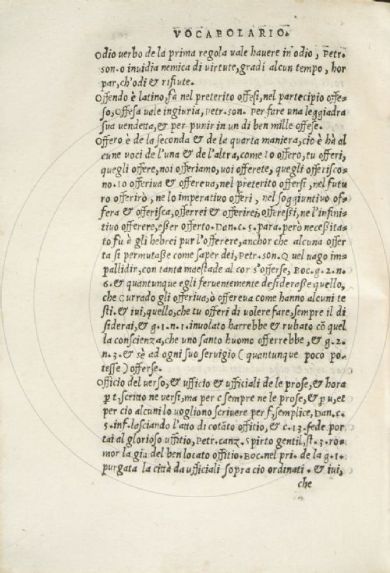 VOCABOLARIO.
Odio verbo de la prima regola vale hauere in odio, Petr.
son. o inuidia nemica di virtute, gradi alcun tempo, hor
par, ch'odi & rifiute.
Offendo è latino, fà nel preterito offesi, nel partecipio offe-
so, Offesa vale ingiuria, Petr. son. Per fare una leggiadra
sua vendetta, & per punir in un dì ben mille offese.
Offero è de la seconda & de la quarta maniera, ciò è hà al
cune voci de l'una & de l'altra, come Io offero, tu offeri,
quegli offere, noi offeriamo, voi offerete, quegli offerisco-
no. Io offeriua & offereua, nel preterito offersi, nel futu
ro offerirò, ne lo imperatiuo offeri, nel soggiuntiuo of-
fera & offerisca, offerrei & offerirei, offerissi, ne l'infini-
tiuo offerere, esser offerto. Dan. c. 5. para. però necessita-
to fu è gli hebrei pur l'offerere, anchor che alcuna offer
ta si permutasse come saper dei, Petr. son. Quel uago im-
pallidir, con tanta maestade al cor s'offerse, Boc. g. 2. n.
6. & quantunque egli feruentemente desiderasse quello,
che Currado gli offeriua, ò offereua come hanno alcuni te
sti. & iui, quello, che tu offeri di uolere fare, sempre il di
siderai, & g. 1. n. 1. inuolato harrebbe & rubato cõ quel
la conscienza, che uno santo huomo offerrebbe, & g. 2.
n. 3. & sè ad ogni suo seruigio (quantunque poco po-
tesse) offerse.
Officio del uerso, & ufficio & ufficiali de le prose, & hora
p t, scritto ne versi, ma per c sempre ne le prose, & p u, et
per cio alcuni lo uogliono scriuere per f, semplice, Dan. c.
5. inf. lesciando l'atto di cotãto offitio, & c. 13. fede por
tai al glorioso uffitio, Petr. canz. Spirto gentil, st. 3. ro-
mor la giu del ben locato offitio. Boc. nel pri. de la g. 1.
purgata la città da ufficiali sopra cio ordinati. & iui,
che